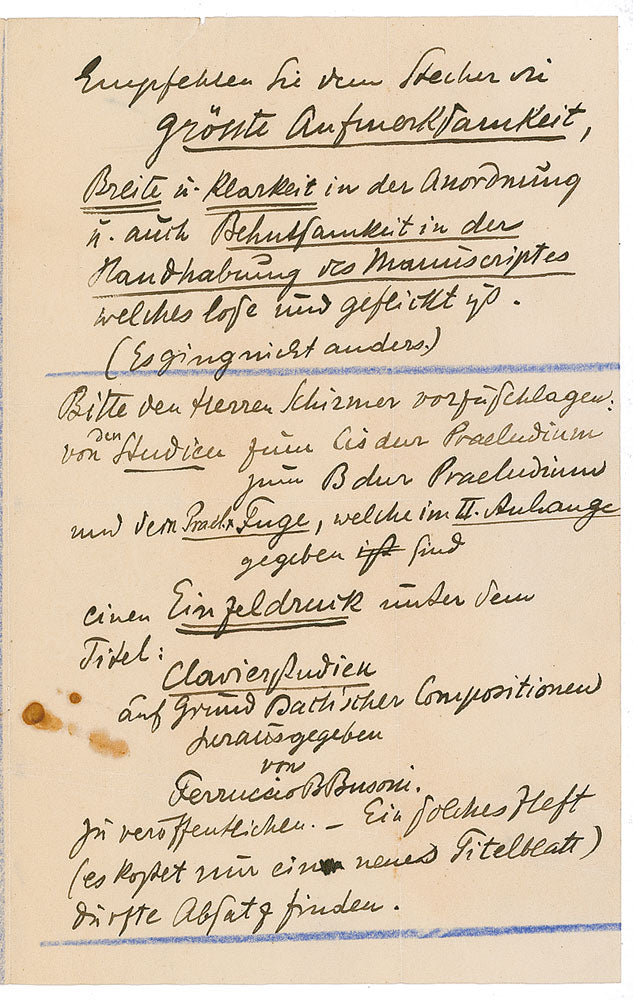 Empfehlen Sie dem Stecher die
grösste Aufmerksamkeit,
Breite u. Klarkeit in der Anordnung
u. auch Behutsamkeit in der
Handhabung des Manuscriptes
welches lose und geflickt ist.
(Es ging nicht anders.)
Bitte den Herren Schirmer vorzuschlagen:
von den Studien zum Cis dur Praeludium
zum B dur Praeludium
und dem Prael. Fuge, welche im II. Anhange
gegeben ist sind
einen Einzeldruck unter dem
Titel:
Clavierstudien
auf Grund Bach'scher Compositionen
herausgegeben
von
Ferruccio B Busoni.
zu veröffentlichen. – Ein solches Heft
(es kostet nur ein neues Titelblatt)
dürfte Absatz finden.